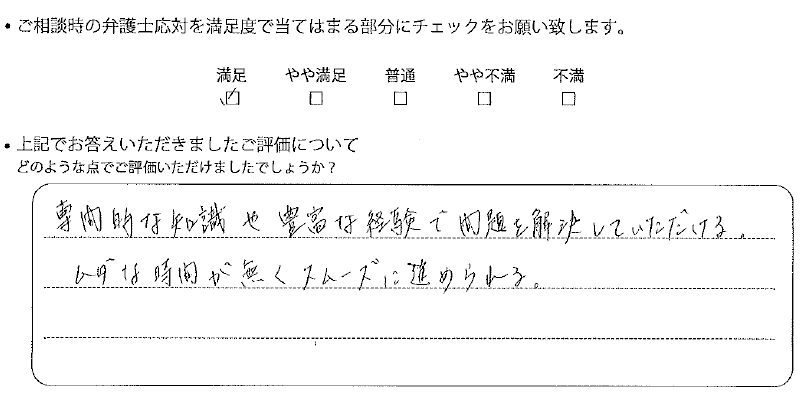 ・ご相談時の弁護士応対を満足度で当てはまる部分にチェックをお願い致します。
満足 やや満足 普通 やや不満 不満
☑ □ □ □ □
・上記でお答えいただきましたご評価について
どのような点でご評価いただけましたでしょうか？
専門的な知識や豊富な経験で問題を解決していただける。
ムダな時間が無くスムーズに進められる。